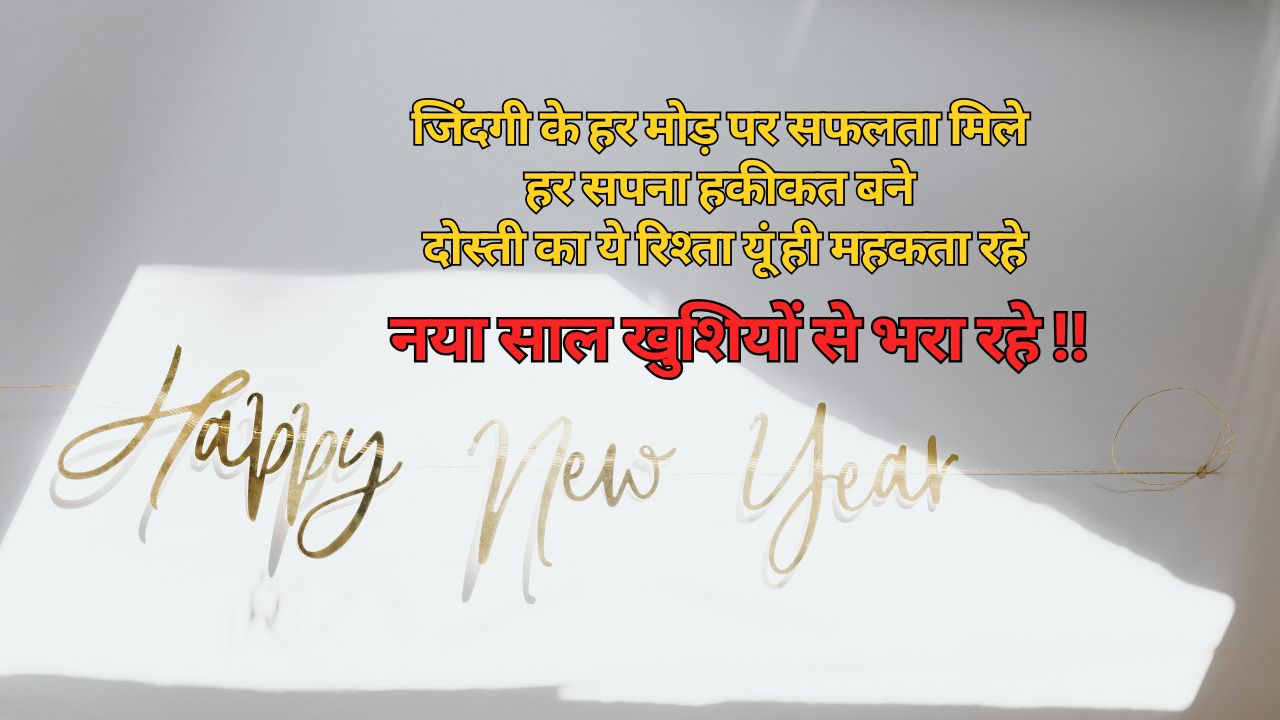 जिंदगी के हर मोड़ पर सफलता मिले
हर सपना हकीकत बने
दोस्ती का ये रिश्ता यूं ही महकता रहे
नया साल खुशियों से भरा रहे !!
Happy New Year